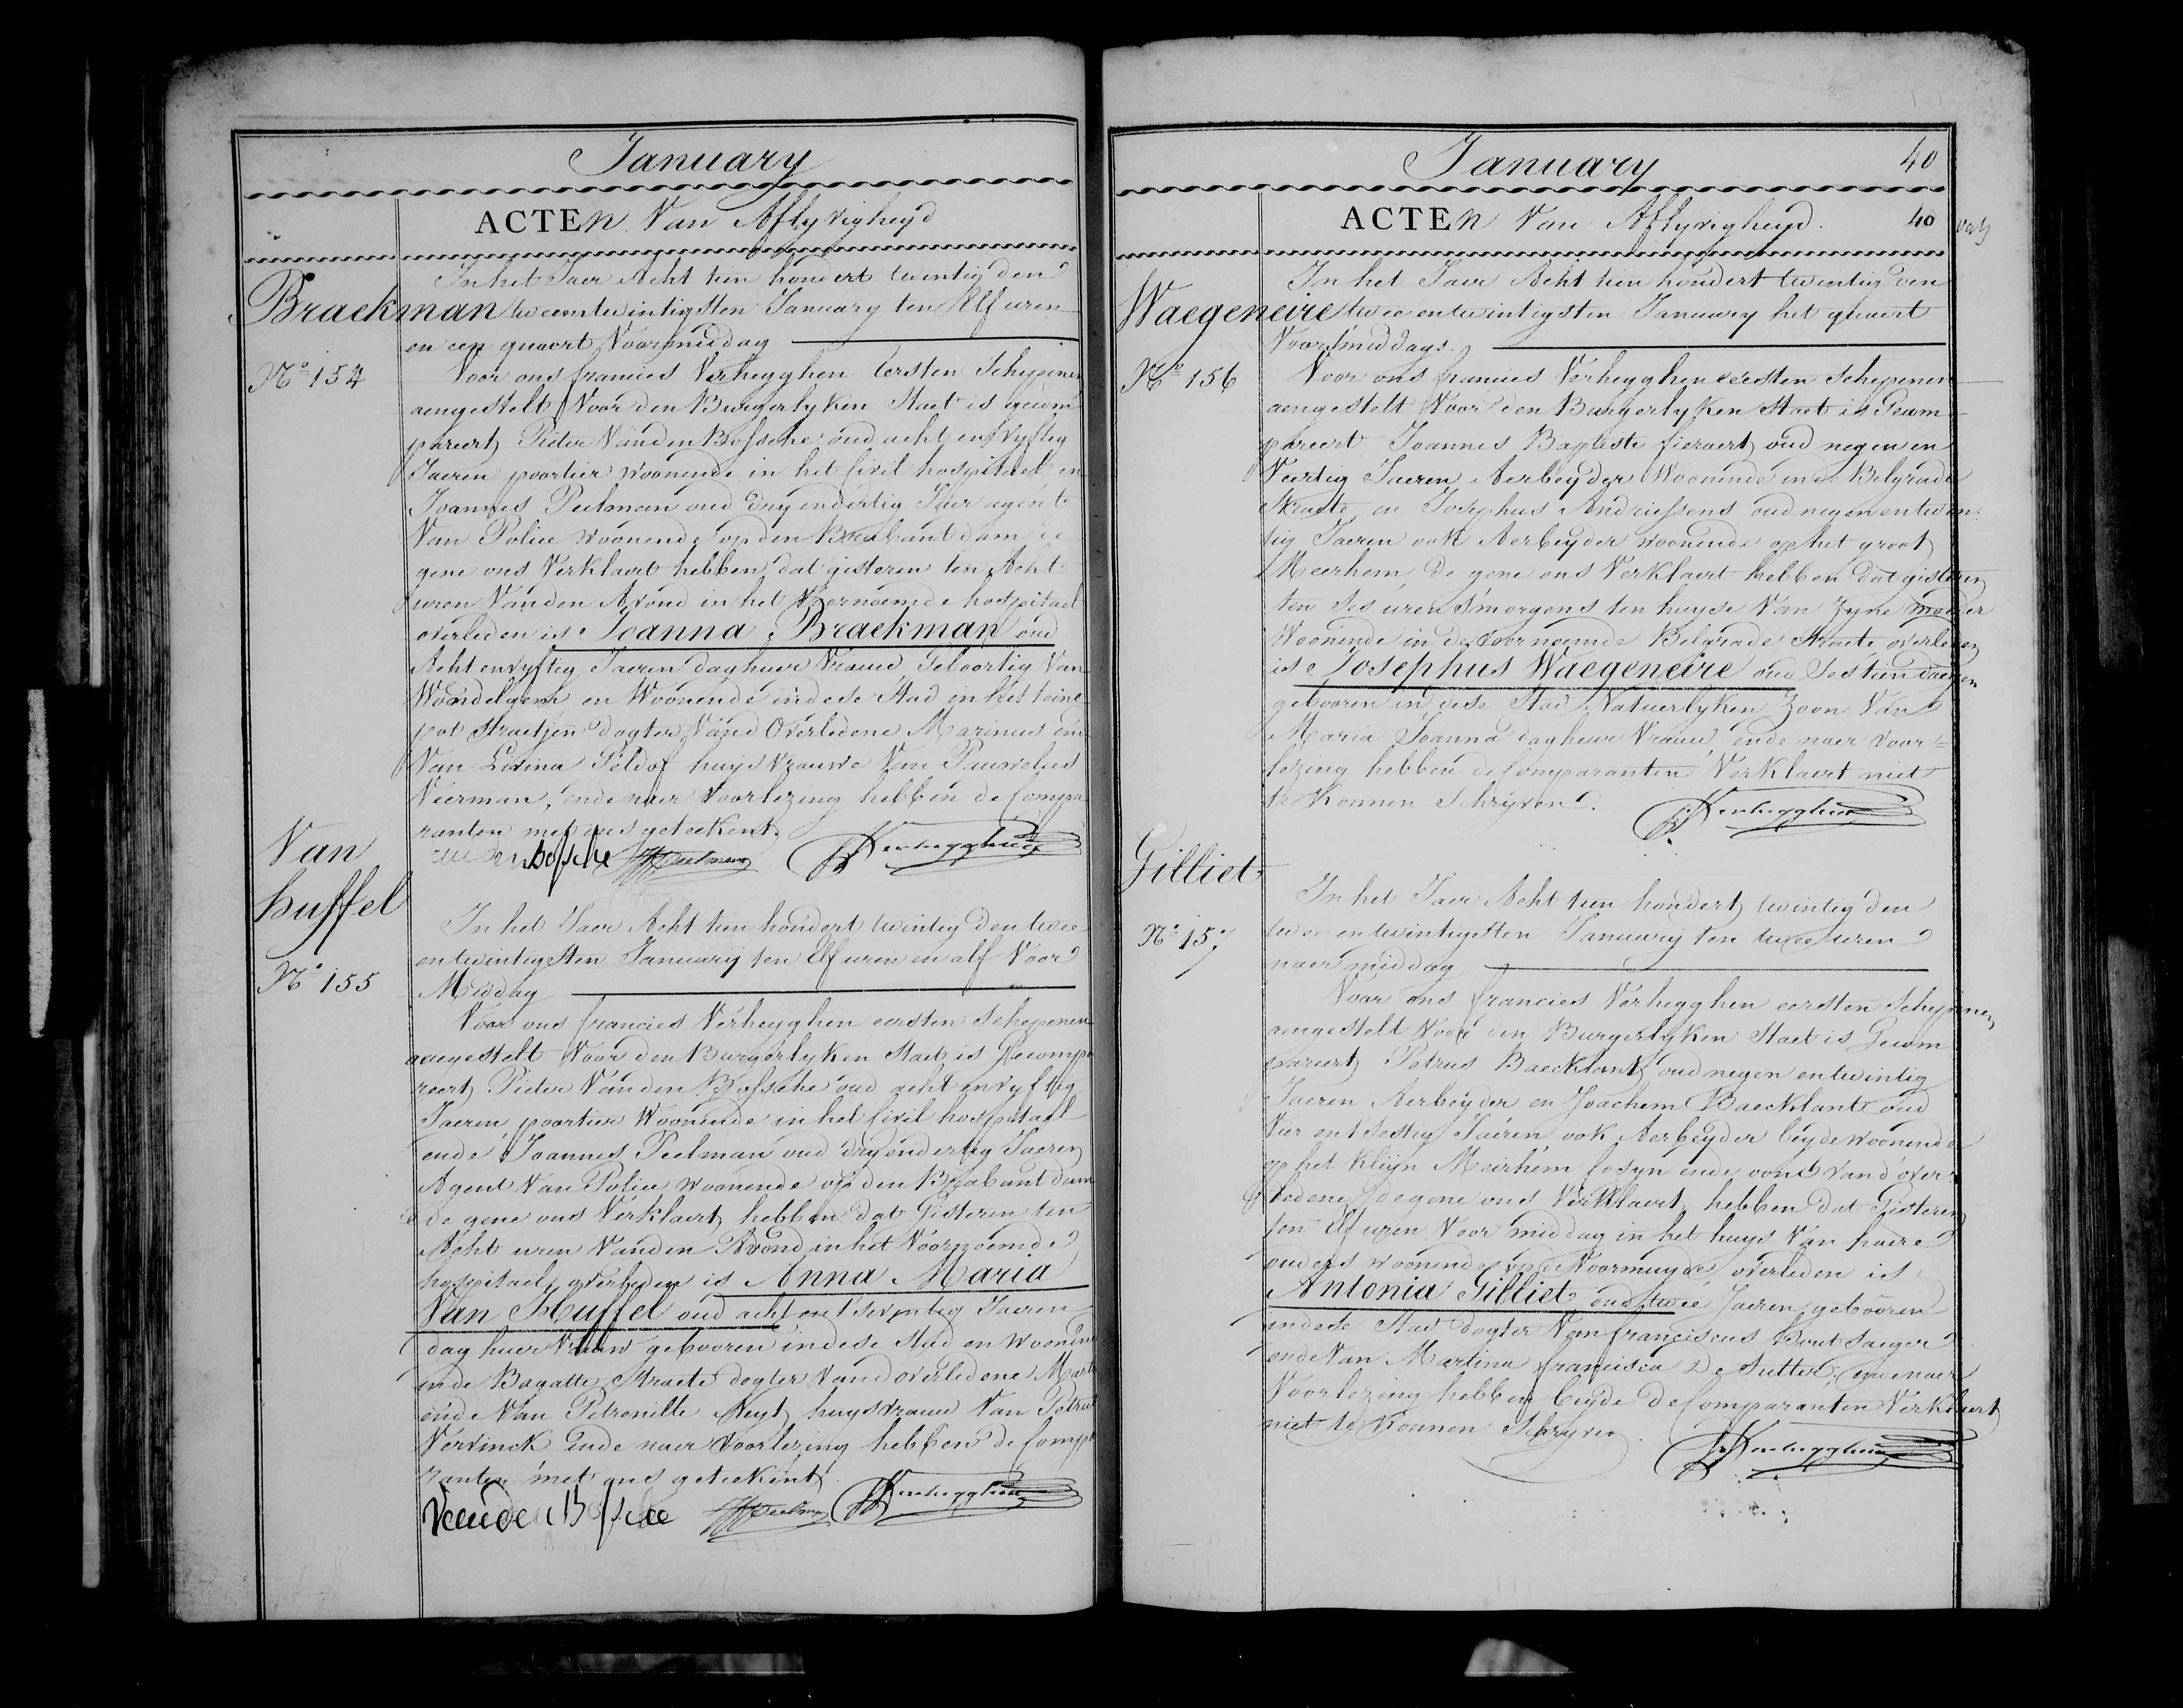 January
ACTEn Van Aflyvigheyd
Braekman
No 154
In het Jaer Acht tien hondert twintig den
tweeentwintigsten January ten Elf uren
en een quaert Voormiddag
Voor ons francies Verhegghen Eersten Schepenen
aengestelt Voor den Burgerlyken Staet is gecom
pareert Pieter Vanden Bossche oud acht en vyftig
Jaeren poortier woonende in het Civil hospitael en
Joannes Peelman oud dryendertig Jaer agent
Van Police woonende op den Brabantdam de
gene ons Verklaert hebben dat gisteren ten Acht
uren Vanden Avond in het Voornoemde hospitael
overleden is Joanna Braekman oud
Acht envyftig Jaeren daghuer Vrauw Geboortig Van
Wondelgem en Woonende indese Stad in het
pot Straetjen dogter Vand Overledene Marinus en
Van Livina Geldof huysvrauwe Van Pauwelus
Veerman, ende naer Voorlezing hebben de Compa
ranten met ons geteekent
vanden Bossche JPeelman Verhegghen
Van
huffel
No 155
In het Jaer Acht tien hondert twintig den twee
entwintigsten January ten Elf uren en alf Voor
Middag
Voor ons francies Verhegghen eersten Schepenen
aengestelt Voor den Burgerlyken Staet is Gecompa
reert Pieter Vanden Bossche oud acht envyftig
Jaeren poortier Woonende in het Civil hospitael
ende Joannes Peelman oud dryendertig Jaeren
Agent Van Police woonende op den Brabantdam
de gene ons Verklaert hebben dat Gisteren ten
Acht uren Vanden Avond in het Voornoemde
hospitael overleden is Anna Maria
Van Huffel oud acht ent Seventig Jaeren
daghuer Vrauw gebooren indese Stad en Woonende
inde Bagatte Straete dogter Vand overledene
ende Van Petronille Neyt huysvrauw Van Petrus
Vervinck Ende naer Voorlezing hebben de Compa
ranten met ons geteekent
Vanden Bossche JPeelman Verhegghen
January 40
ACTEn Van Aflyvigheyd. 40
Waegeneire
No 156
In het Jaer Acht tien hondert twintig den
twee entwintigsten January het quaert
Voormiddags
Voor ons francies Verhegghen eersten Schepenen
aengestelt Voor den Burgerlyken Staet is Gecom
pareert Joannes Baptiste fieraert oud negen en
Veertig Jaeren Aerbeyder Woonende inde Belgrade
Straete en Josephus Andriessens oud negen entwin
tig Jaeren ook Aerbeyder woonende op het groot
Meerhem, de gene ons Verklaert hebben dat gisteren
ten Ses uren s'morgens ten huyse Van Zyne moeder
Woonende in de Voornoemde Belgrade Straete overleden
is Josephus Waegeneire oud Sestien daegen
gebooren in dese Stad Natuerlyken Zoon Van
Maria Joanna daghuer Vrauw, ende naer voor=
lezing hebben de Comparanten Verklaert niet
te Konnen Schryven. Verhegghen
Gilliet
No 157
In het Jaer Acht tien hondert twintig den
twee entwintigsten January ten twee uren
naermiddag
Voor ons francies Verhegghen eersten Schepenen
aengestelt Voor den Burgerlyken Staet is Gecom
pareert Petrus Baecklant oud negen entwintig
Jaeren Aerbeyder en Joachem Baecklant oud
Vier ent Sestig Jaeren ook Aerbeyder beyde woonende
op het Kleyn Meirhem Cosyn ende oom Vand'over=
ledene de gene ons Verklaert hebben dat Gisteren
ten Elf uren Voormiddag in het huys Van haere
ouders woonende op de Voormuyde overleden is
Antonia Gilliet oud twee Jaeren gebooren
indese Stad dogter Van franciscus Bout Saeger
ende Van Martina francisca De Sutter, ende naer
Voorlezing hebben beyde de Comparanten Verklaert
niet te Konnen Schryven
Verhegghen